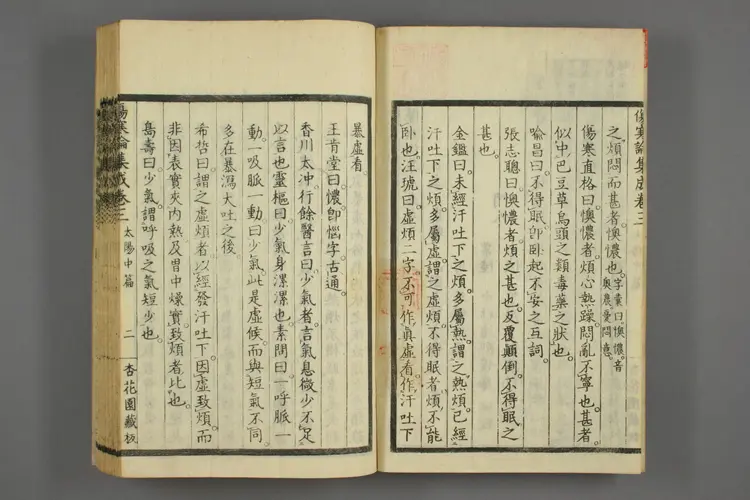 傷寒論集成卷三
之煩悶而甚者懊憹也字彙曰懊憹音
奧農憂悶意
傷寒直格曰懊憹者煩心熱躁悶亂不寧也甚者
似中巴豆草烏頭之類毒藥之狀也
喻昌曰不得眠卽臥起不安之互詞
張志聰曰懊憹者煩之甚也反覆顛倒不得眠之
甚也
金鑑曰未經汗吐下之煩多屬熱謂之熱煩已經
汗吐下之煩多屬虛謂之虛煩不得眠者煩不能
臥也汪琥曰虛煩二字不可作眞虛看作汗吐下
暴虛看
王肯堂曰憹卽惱字古通
香川太沖行餘醫言曰少氣者言氣息微少不足
以言也靈樞曰少氣身漯漯也素問曰一呼脈一
動一吸脈一動曰少氣此是虛候而與短氣不同
多在暴瀉大吐之後
希哲曰謂之虛煩者以經發汗吐下因虛致煩而
非因表實夾內熱及胃中燥實致煩者比也
壽曰少氣謂呼吸之氣短少也
傷寒論集成卷三 太陽中篇 二 杏花園藏板